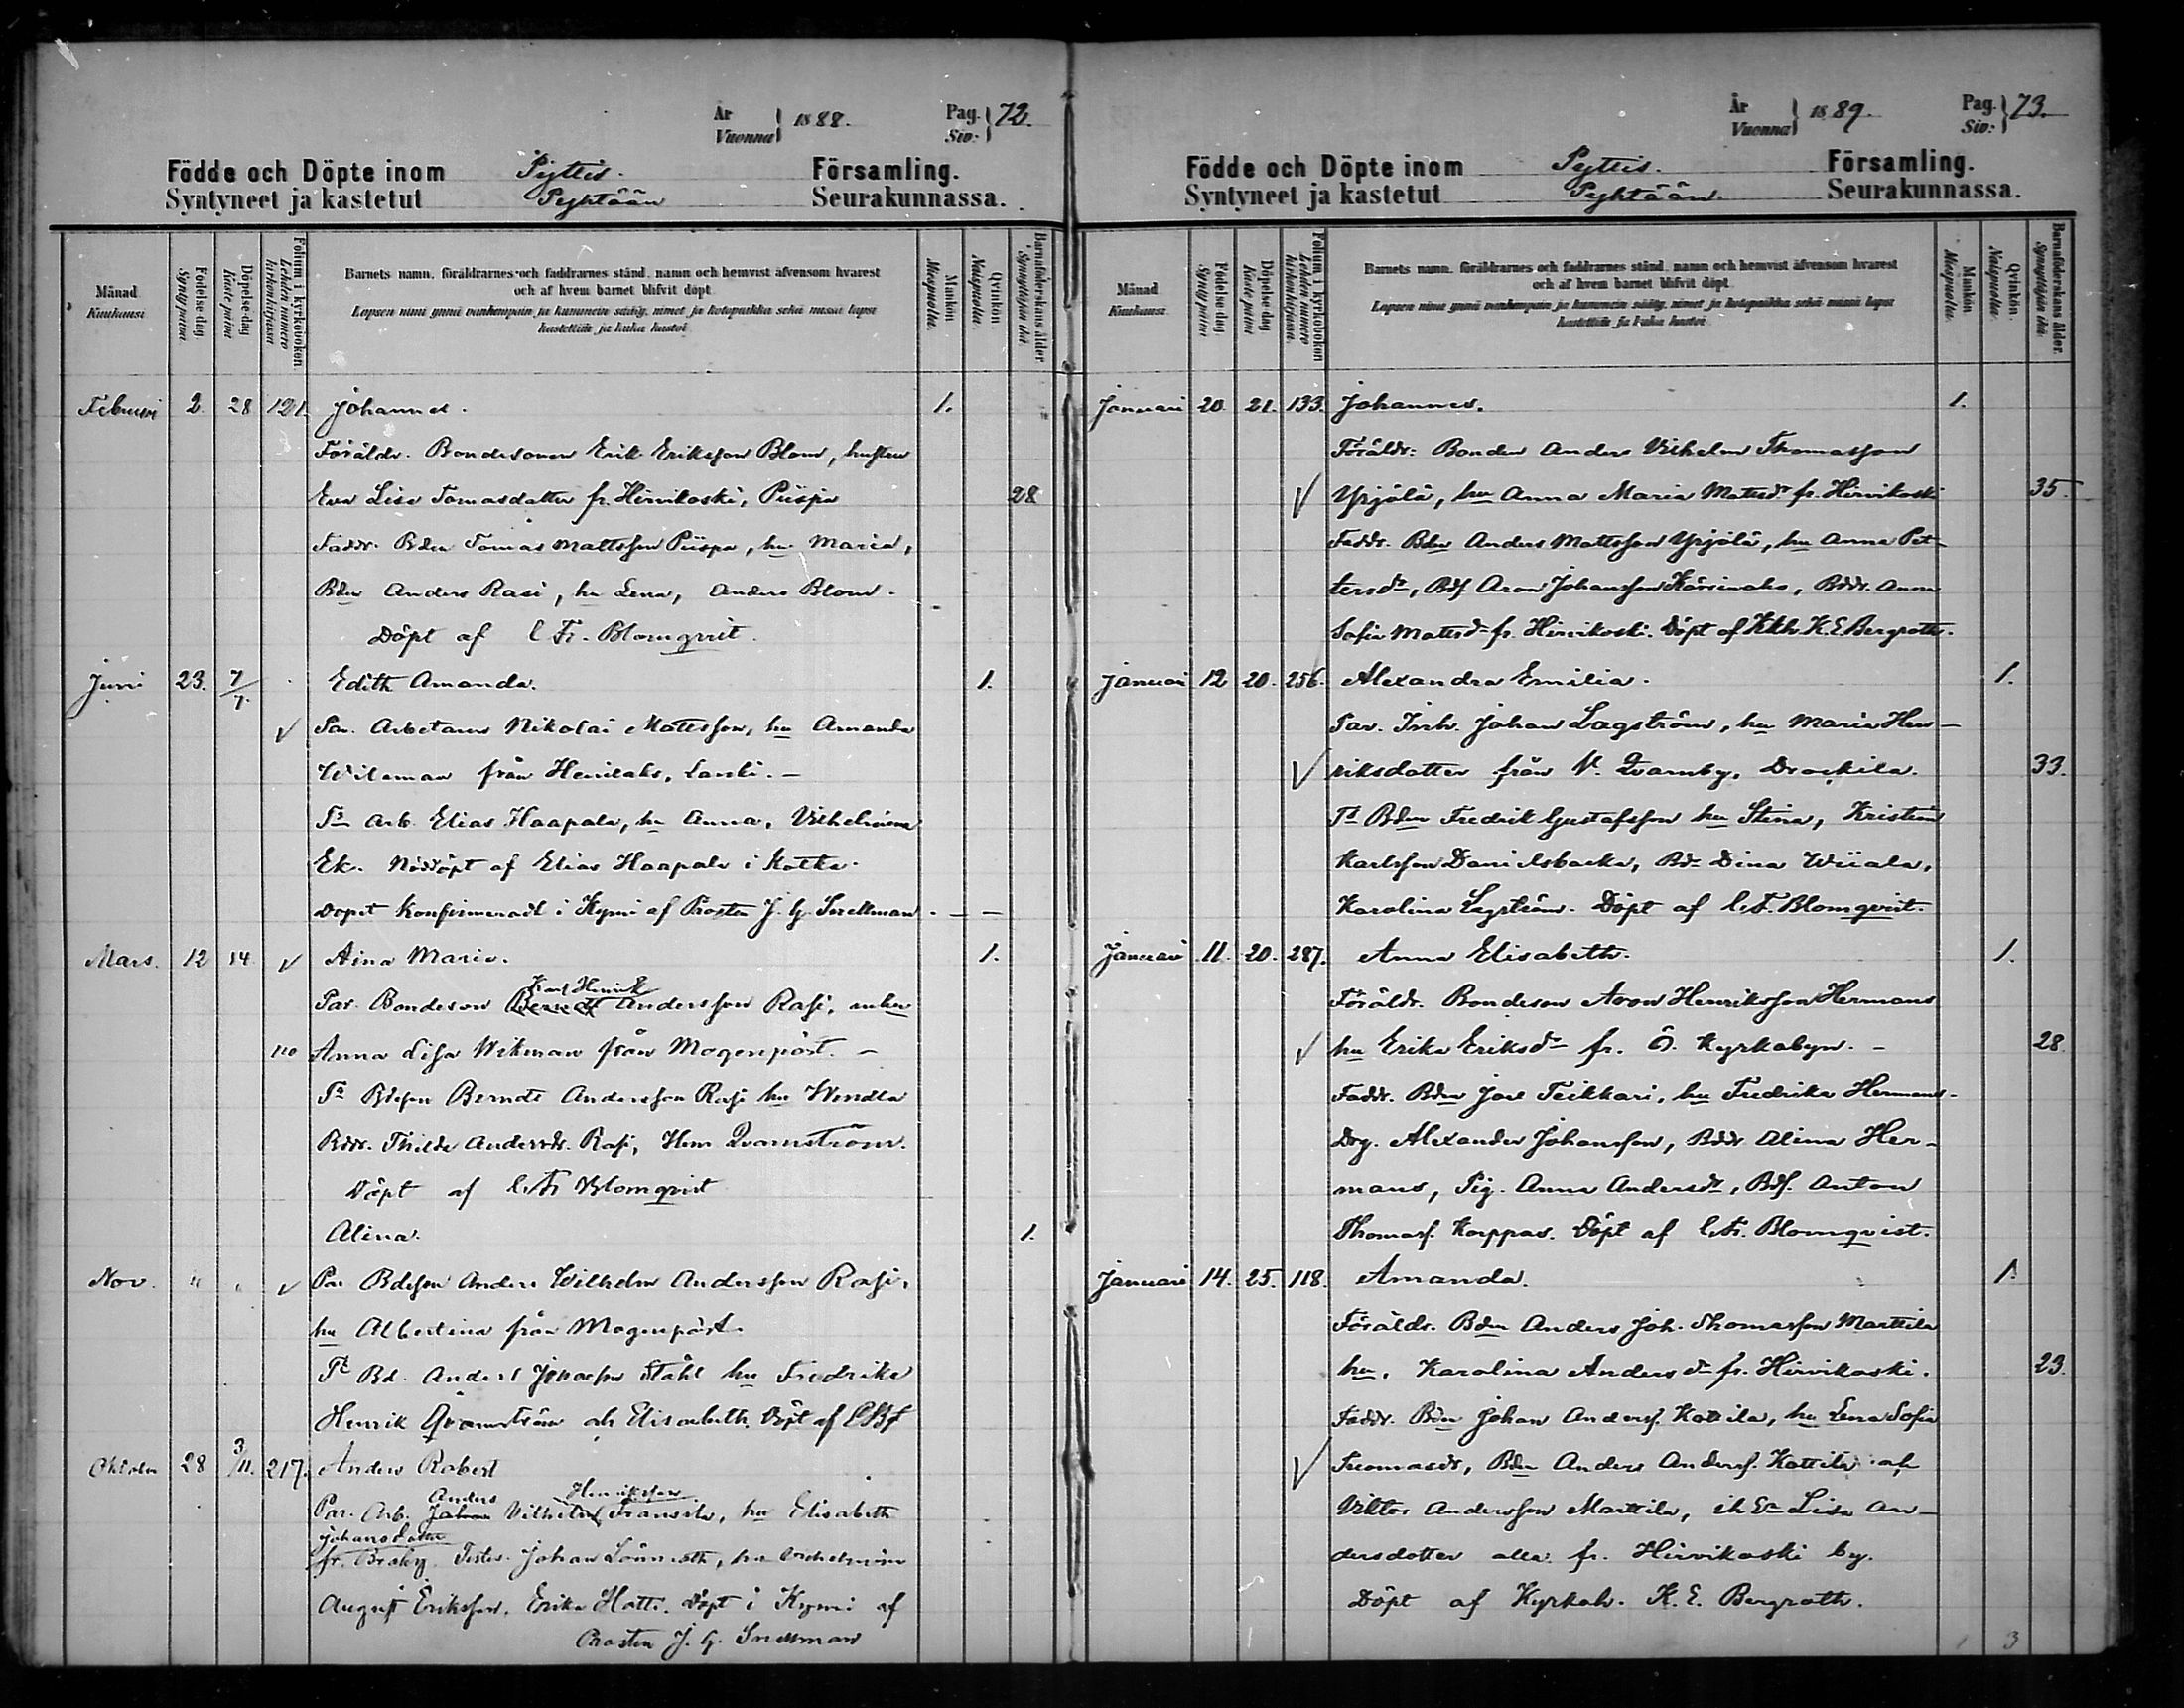 År
Vuonna } 1888.
Pag.
Siv: } 72.
Födde och Döpte inom Pyttis. Församling.
Syntyneet ja kastetut Pyhtään Seurakunnassa.
Månad
Kuukausi
Födelse-dag
Syntypäivä
Döpelse-dag
Kastepäivä
Folium i kyrkoboken
Lehden numero kirkonkirjassa
Barnets namn, föräldrarnes och faddrarnes stånd, namn och hemvist äfvensom hvarest
och af hvem barnet blifvit döpt.
Lapsen nimi ynnä vanhempain ja kummein sääty, nimet ja kotopaikka sekä missä lapsi
kastettiin ja kuka kastoi
Mankön
Miespuolia.
Qvinkön
Naispuolia.
Barnaföderskans ålder.
Synnyttäjän ikä.
Februari 2 28 121. Johannes. 1.
Föräldr. Bondesonen Erik Eriksson Blom, hustru
Eva Lisa Tomasdatter fr. Hirvikoski, Piispa 28
Faddr. Bden Tomas Mattsson Piispa, hu Maria,
Bden Anders Rasi, hu Lena, Anders Blom.
Döpt af C Fr. Blomqvist.
Juni 23. 7/7. Edith Amanda. 1.
Par. Arbetaren Nikolai Mattsson, hu Amanda
Wikman från Heinlaks,
Ts Arb. Elias Haapala, hu Anna, Vilhelmina
Ek. Nöddöpt af Elias Haapala i Kotka.
Dopet konfirmeradt i Kymi af Prosten J. G. Snellman.
Mars. 12 14 Aina Maria. 1.
Karl Henrik
Par. Bondeson Berndt Andersson Rasi,
110 Anna Lisa Wikman från Mogenpört.
Ts Bdeson Berndt Andersson Rasi hu Wendla
Bddr. Thilda Andersdr. Rasi, Hem Qvarnström.
Döpt af C. Fr Blomqvist
Alina. 1.
Nov. " " Par Bdeson Anders Wilhelm Andersson Rasi,
hu Albertina från Mogenpört.
Ts Bd. Anders Ståhl hu Fredrika
Henrik Qvarnström och Elisabeth. Döpt af
Oktober 28 3/11. 217. Anders Robert
Anders Henriksson
Par. Arb. Johan Vilhelm Fransila, hu Elisabeth
Johansdatter
fr. Broby. Testes. Johan Lönnroth, hu Vilhelmina
August Eriksson, Erika Hatt. Döpt i Kymi af
Prosten J. G. Snellman
År
Vuonna } 1889.
Pag.
Siv: } 73.
Födde och Döpte inom Pyttis. Församling.
Syntyneet ja kastetut Pyhtään. Seurakunnassa.
Månad
Kuukausi.
Födelse-dag
Syntypäivä
Döpelse-dag
Kastepäivä
Folium i kyrkoboken
Lehden numero kirkonkirjassa.
Barnets namn, föräldrarnes och faddrarnes stånd, namn och hemvist äfvensom hvarest
och af hvem barnet blifvit döpt.
Lapsen nimi ynnä vanhempain ja kummein sääty, nimet ja kotopaikka sekä missä lapsi
kastettiin ja kuka kastoi
Mankön
Miespuolia.
Qvinkön.
Naispuolia.
Barnaföderskans ålder.
Synnyttäjän ikä.
Januari 20. 21. 133. Johannes. 1.
Föräldr: Bonden Anders Vilhelm Thomasson
Yrjölä, hu Anna Maria Matsdr fr. Hirvikoski 35.
Faddr. Bden Anders Mattsson Yrjölä, hu Anna Pet-
tersdr, Bdf. Aron Johansson, Bddr. Anna
Sofia Matsdr fr. Hirvikoski. Döpt af Kkh K. E. Bergroth.
Januari 12 20. 256. Alexandra Emilia. 1.
Par. Inh. Johan Lagström, hu Maria Hen-
riksdotter från V. Qvarnby, Drockila. 33.
Ts Bden Fredrik Gustafsson hu Stina, Kristian
Karlsson Danielsbacka, Bdr Dina Wiiala,
Karolina Lagström. Döpt af C. F. Blomqvist.
Januari 11. 20. 287. Anna Elisabeth. 1.
Föräldr. Bondeson Aron Henriksson Hermans
hu Erika Eriksdr fr. Ö. Kyrkobyn. 28
Faddr. Bden Joel Teikkari, hu Fredrika Hermans-
Drg. Alexander Johansson, Bddr Alina Her-
mans, Pig. Anna Andersdr, Bdf. Anton
Thomasf. Korppas. Döpt af C. Fr. Blomqvist.
Januari 14. 25. 118. Amanda. 1.
Föräldr. Bden Anders Joh. Thomasson Marttila
hu, Karolina Andersdr fr. Hirvikoski. 23.
Faddr. Bden Johan Andersf. Kottila, hu Lena Sofia
Tuomasdr, Bden Anders Andersf. Kottila och
Viktor Andersson Marttila, Lisa An-
dersdotter alla fr. Hirvikoski by.
Döpt af Kyrkoh. K. E. Bergroth.
1 3